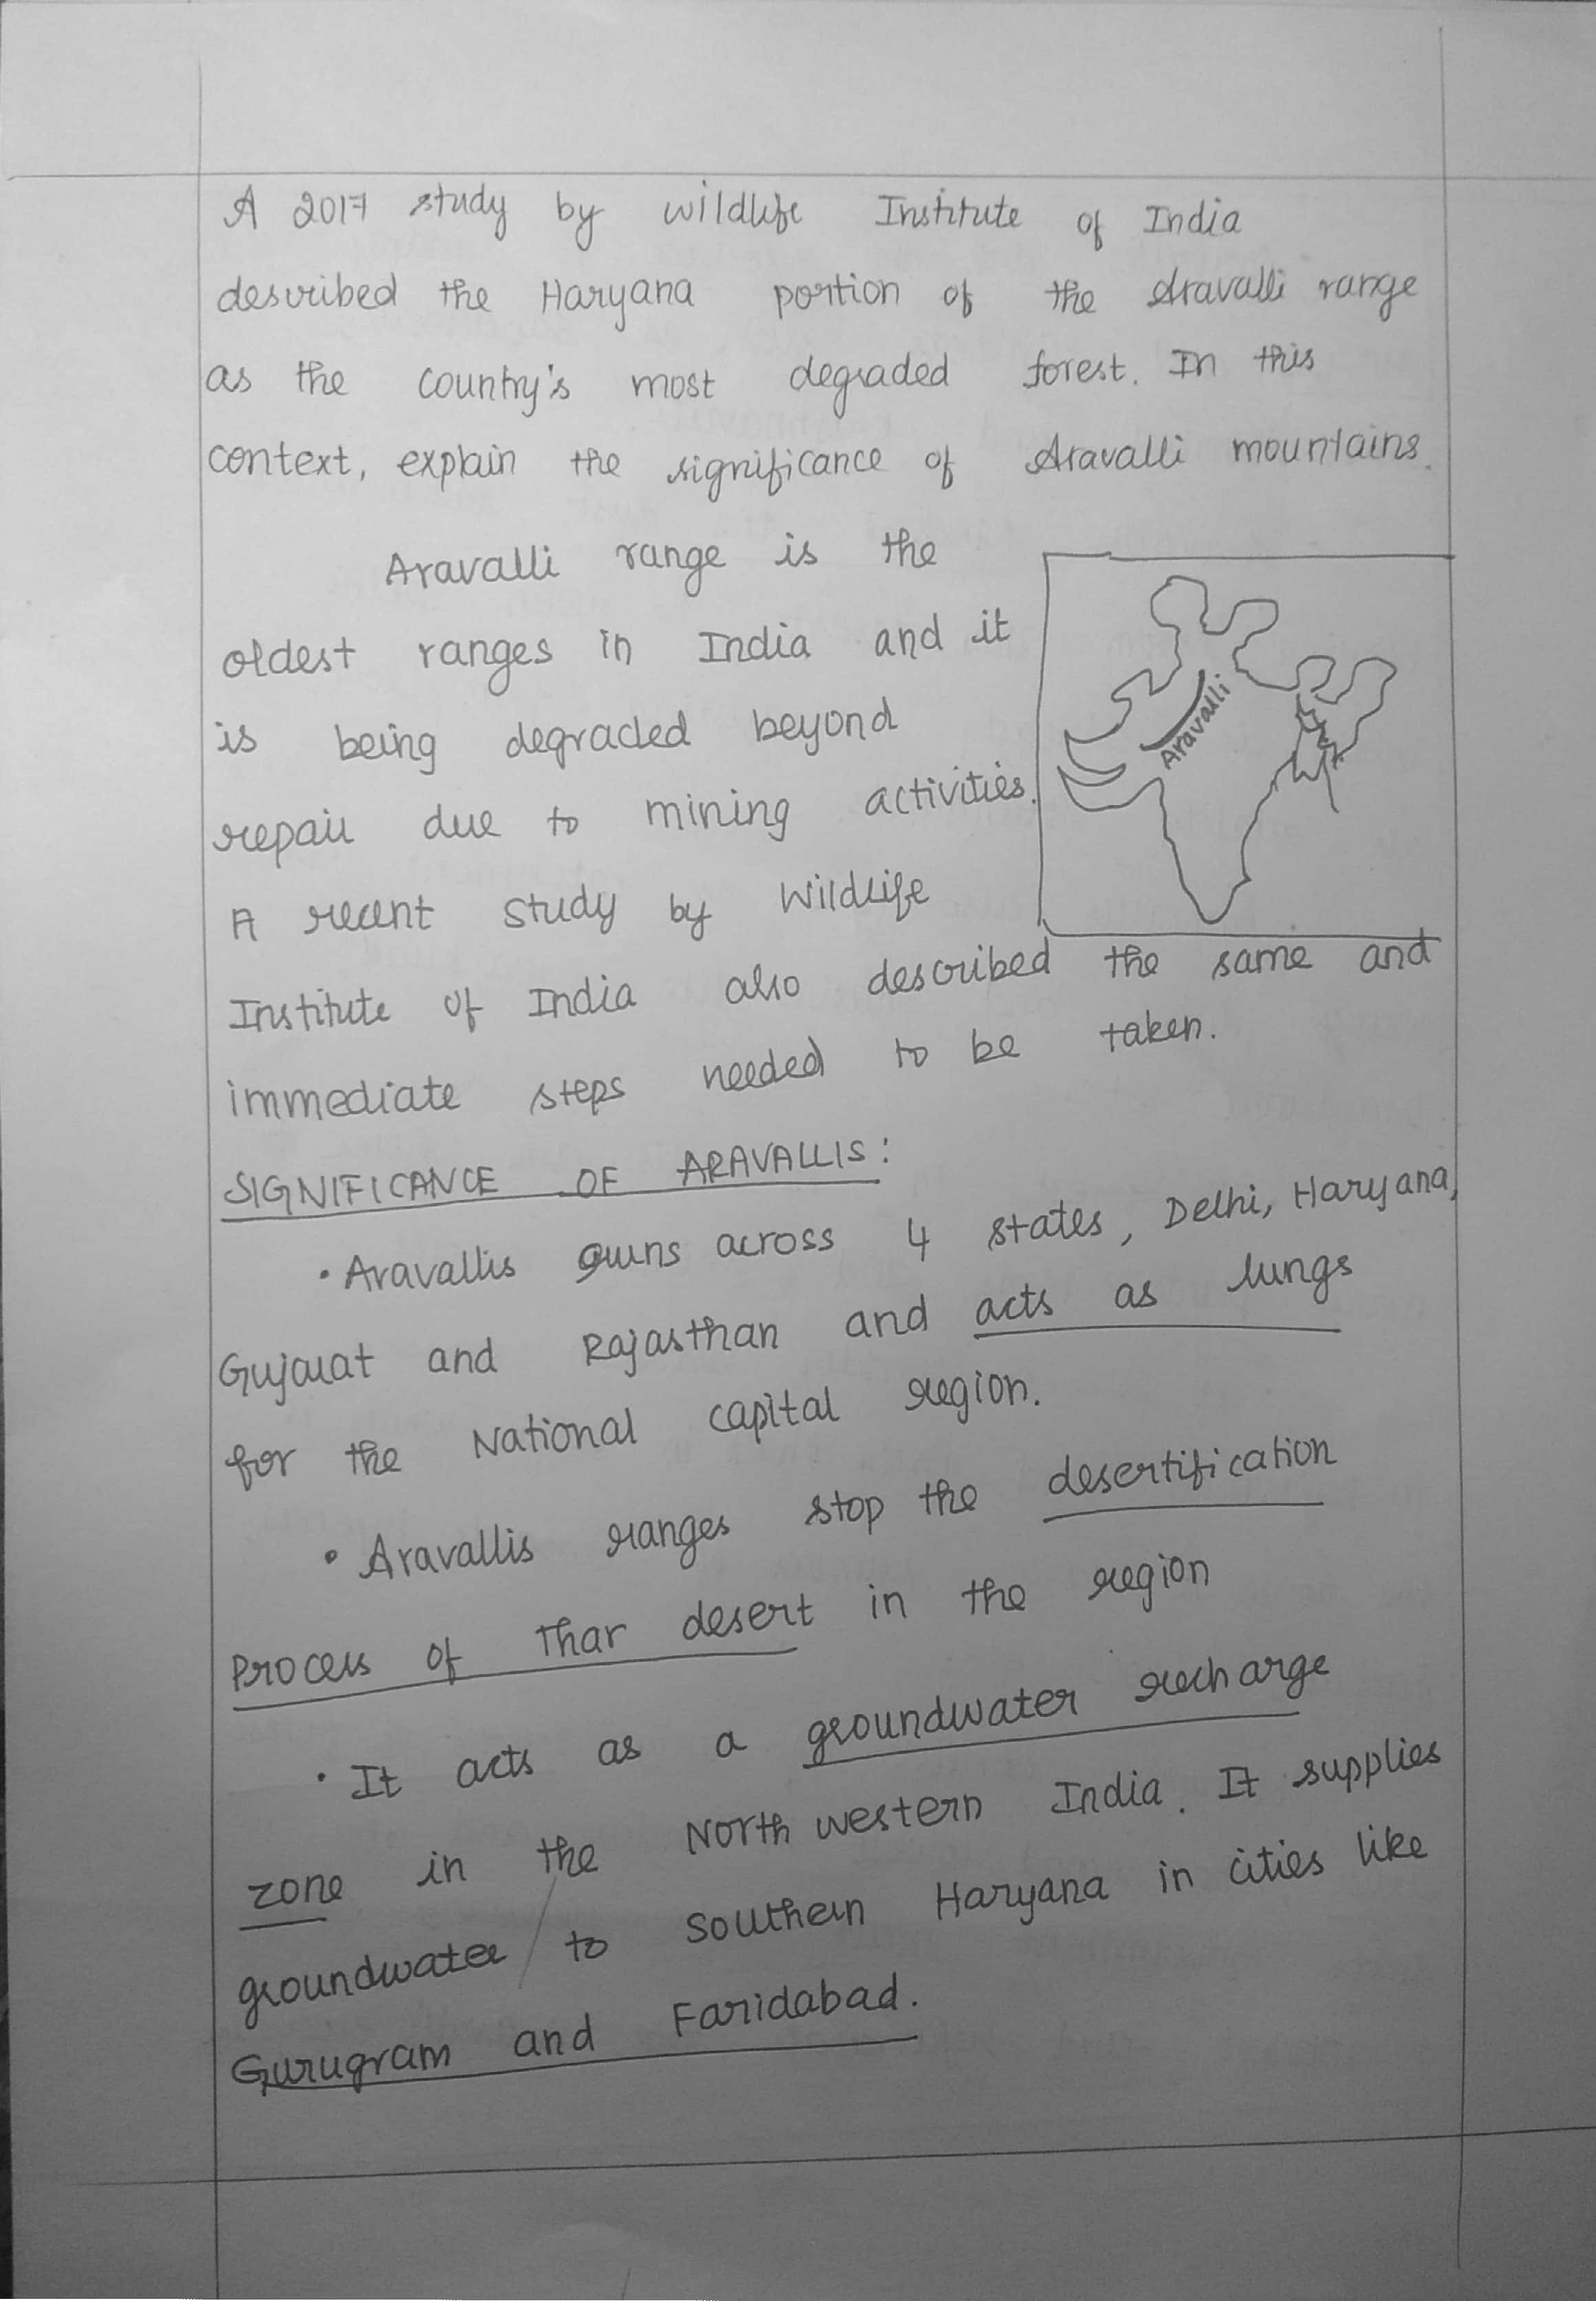 A 2017 study by wildlife Institute of India
described the Haryana portion of the Aravalli range
as the country's most degraded forest. In this
context, explain the significance of Aravalli mountains.
Aravalli range is the
oldest ranges in India and it
is being degraded beyond
repair due to mining activities.
A recent study by Wildlife
Aravalli
Institute of India also described the same and
immediate steps needed to be taken.
SIGNIFICANCE OF ARAVALLIS:
• Aravallis runs across 4 states, Delhi, Haryana,
Gujarat and Rajasthan and acts as lungs
for the National capital region.
• Aravallis ranges stop the desertification
Process of Thar desert in the region
• It acts as a groundwater recharge
zone in the North western India. It supplies
groundwater to Southern Haryana in cities like
Gurugram and Faridabad.